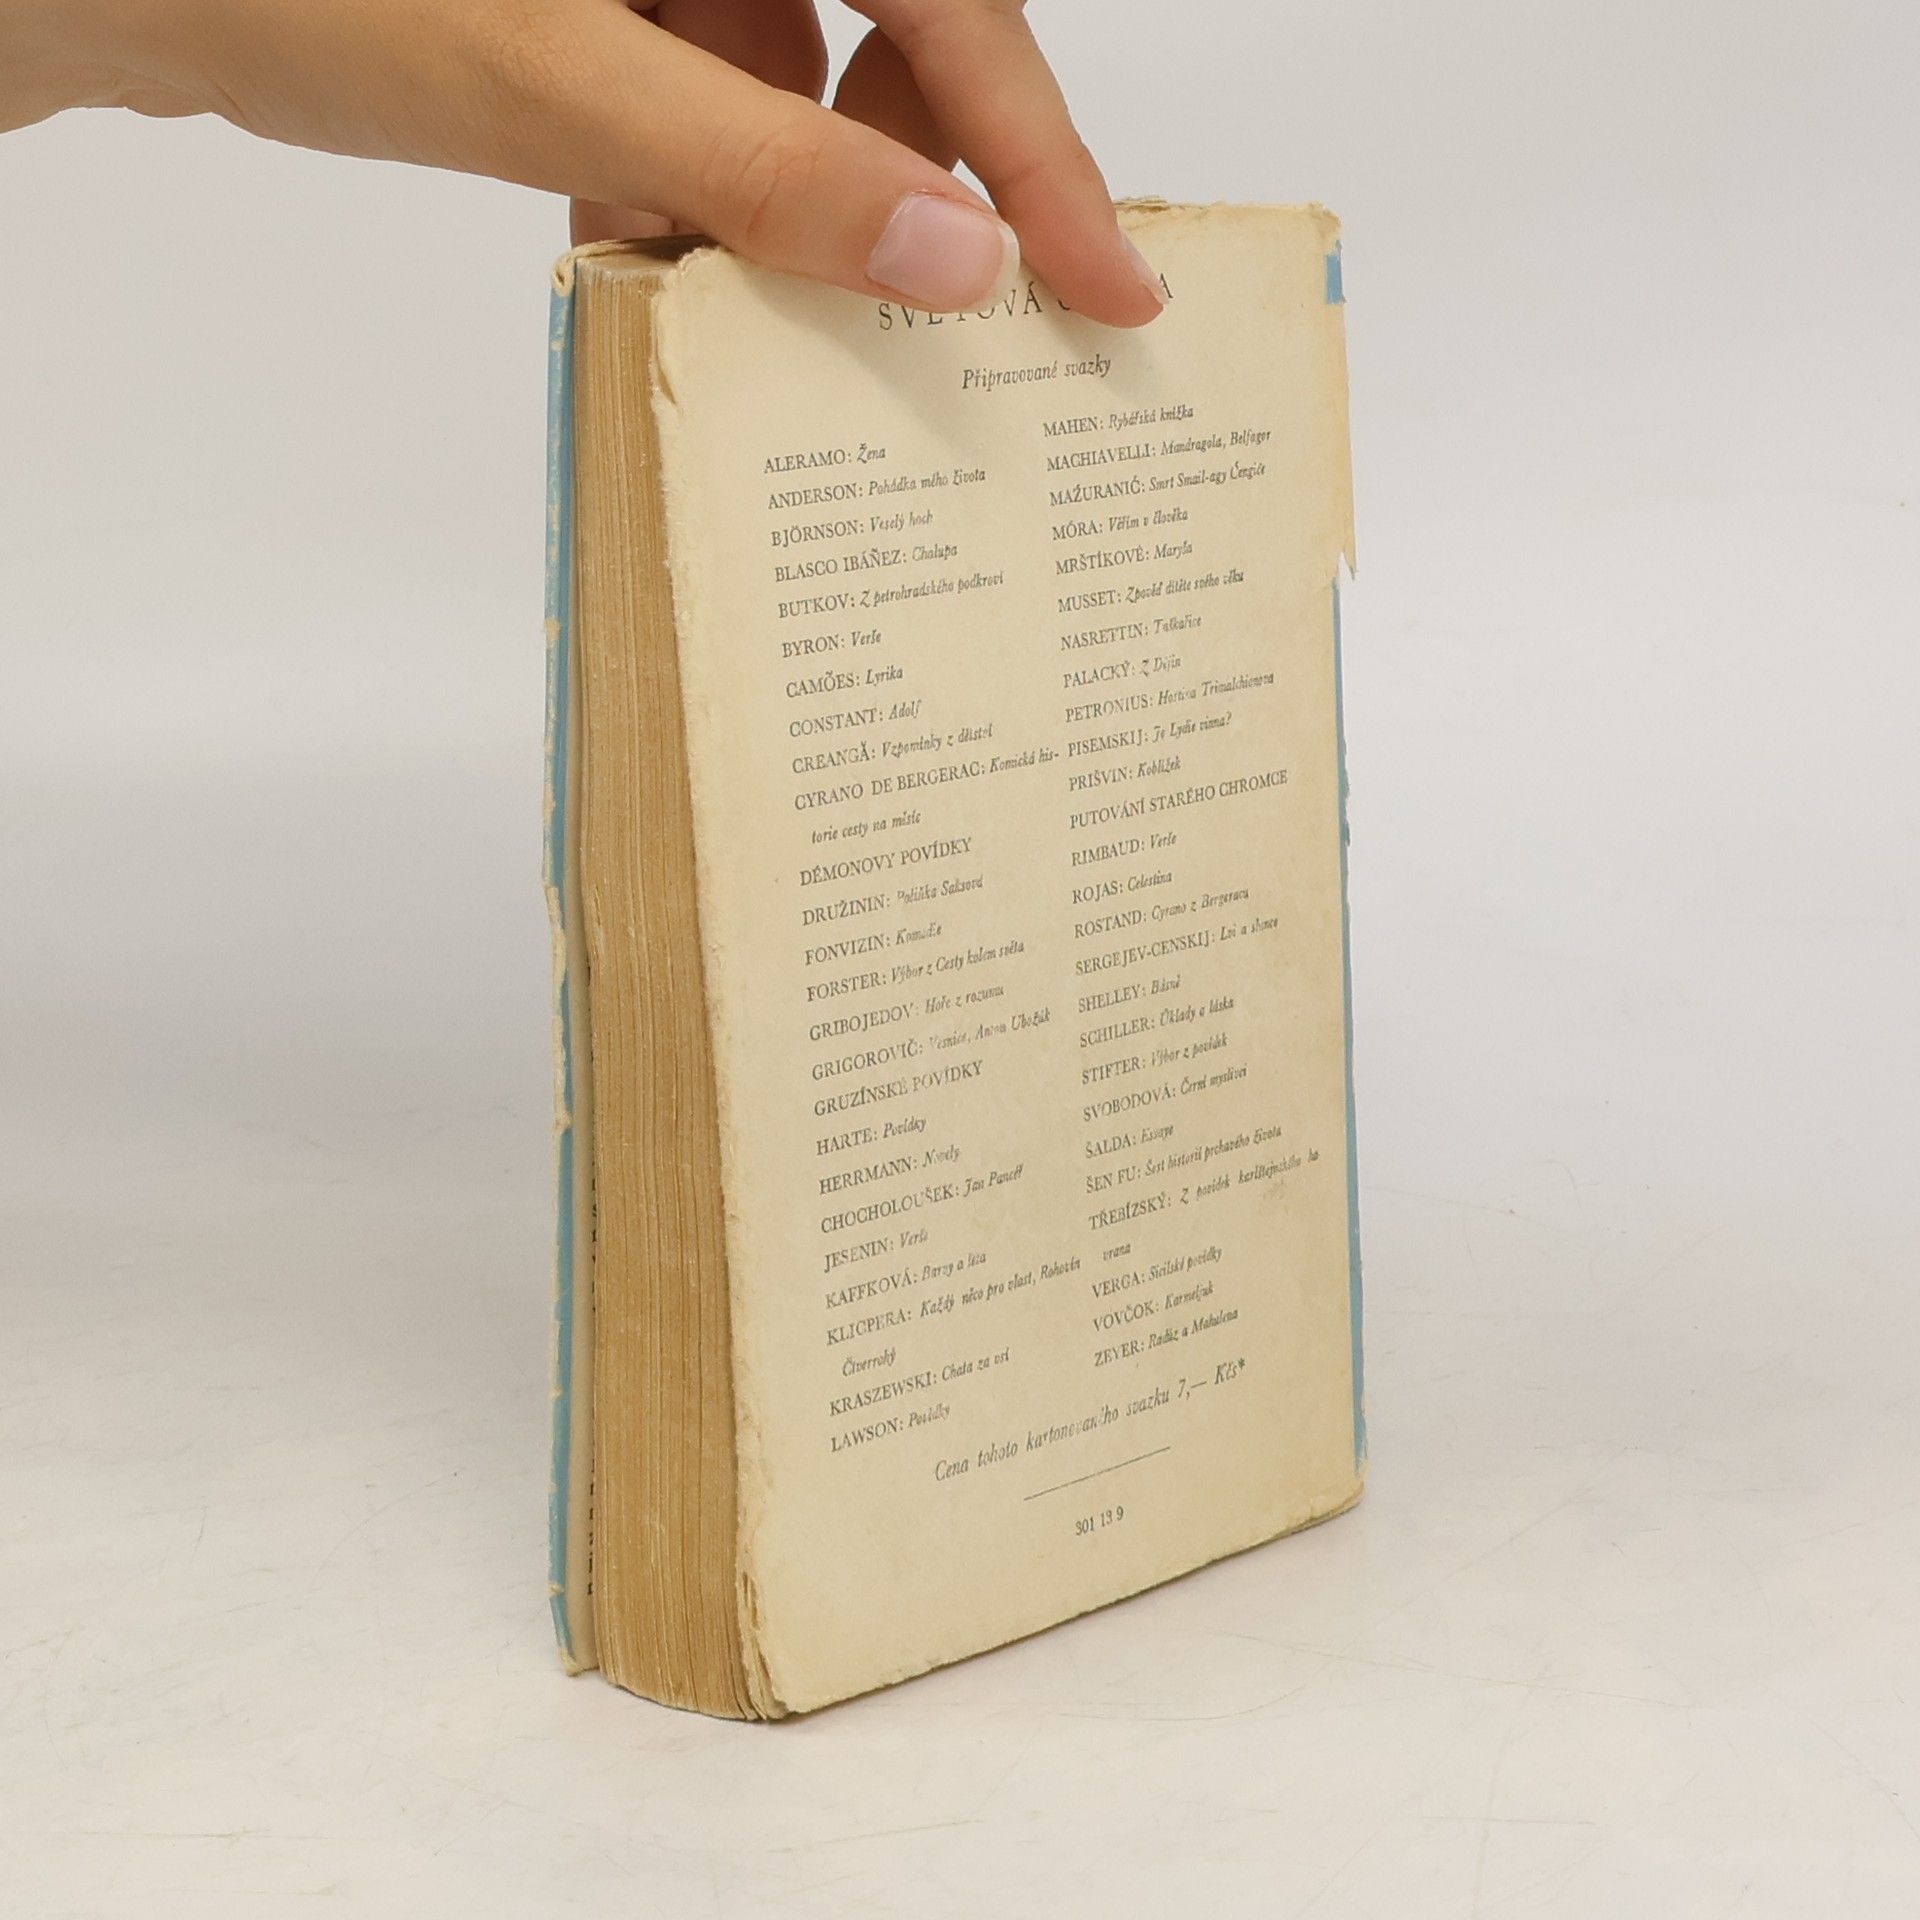 SVĚTOVÁ
Připravované svazky
ALERAMO: Žena
ANDERSON: Pohádka mého života
BJÖRNSON: Veselý hoch
BLASCO IBÁÑEZ: Chalupa
BUTKOV: Z petrohradského podkroví
BYRON: Verše
CAMÕES: Lyrika
CONSTANT: Adolf
CREANGĂ: Vzpomínky z dětství
CYRANO DE BERGERAC: Komická his-
torie cesty na měsíc
DÉMONOVY POVÍDKY
DRUŽININ: Polińka Saksová
FONVIZIN: Komedie
FORSTER: Výbor z Cesty kolem světa
GRIBOJEDOV: Hoře z rozumu
GRIGOROVIČ: Vesnice, Anton Ubožák
GRUZÍNSKÉ POVÍDKY
HARTE: Povídky
HERRMANN: Novely
CHOCHOLOUŠEK: Jan Pancéř
JESENIN: Verše
KAFFKOVÁ: Barvy a léta
KLICPERA: Každý něco pro vlast, Rohovín
Čtverrohý
KRASZEWSKI: Chata za vsí
LAWSON: Povídky
MAHEN: Rybářská knížka
MACHIAVELLI: Mandragola, Belfagor
MAŽURANIĆ: Smrt Smail-agy Čengiće
MÓRA: Věřím v člověka
MRŠTÍKOVÉ: Maryša
MUSSET: Zpověď dítěte svého věku
NASRETTIN: Taškařice
PALACKÝ: Z Dějin
PETRONIUS: Hostina Trimalchionova
PISEMSKIJ: Je Lydie vinna?
PRIŠVIN: Koblížek
PUTOVÁNÍ STARÉHO CHROMCE
RIMBAUD: Verše
ROJAS: Celestina
ROSTAND: Cyrano z Bergeracu
SERGEJEV-CENSKIJ: Lvi a slunce
SHELLEY: Básně
SCHILLER: Úklady a láska
STIFTER: Výbor z povídek
SVOBODOVÁ: Černí myslivci
ŠALDA: Essaye
ŠEN FU: Šest historií prchavého života
TŘEBÍZSKÝ: Z povídek karlštejnského ha
vrana
VERGA: Sicilské povídky
VOVČOK: Karmeljuk
ZEYER: Radúz a Mahulena
Cena tohoto kartonovaného svazku 7,— Kčs*
301 13 9